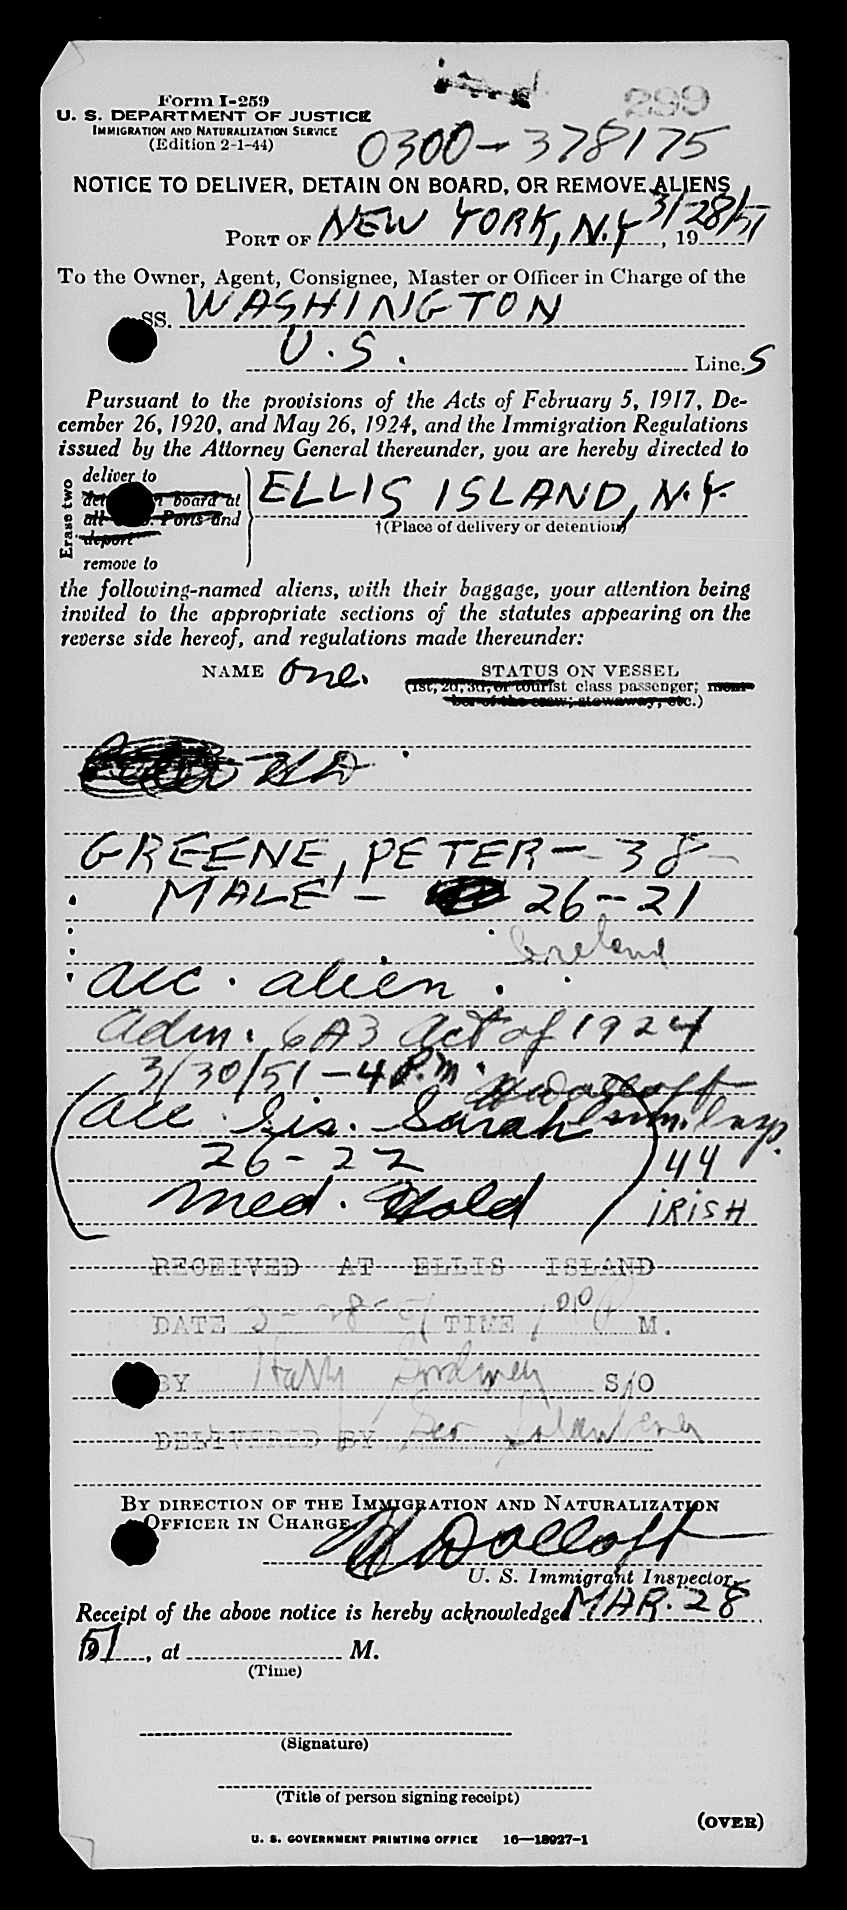 299
Form I-259
U. S. DEPARTMENT OF JUSTICE
IMMIGRATION AND NATURALIZATION SERVICE
(Edition 2-1-44)
0300-378175
NOTICE TO DELIVER, DETAIN ON BOARD, OR REMOVE ALIENS
PORT OF NEW YORK, N.Y 3/28/51, 19
To the Owner, Agent, Consignee, Master or Officer in Charge of the
SS. WASHINGTON
U.S. Line.S
Pursuant to the provisions of the Acts of February 5, 1917, De-
cember 26, 1920, and May 26, 1924, and the Immigration Regulations
issued by the Attorney General thereunder, you are hereby directed to
Erase two
deliver to
board at
Ports and
deport
remove to
ELLIS ISLAND, N.Y.
†(Place of delivery or detention)
the following-named aliens, with their baggage, your attention being
invited to the appropriate sections of the statutes appearing on the
reverse side hereof, and regulations made thereunder:
NAME One. STATUS ON VESSEL
(1st, 2d, 3d, or tourist class passenger; mem-
ber of the crew; stowaway, etc.)
GREENE, PETER - 38
MALE - 26-21
Ireland
acc. alien.
adm. 6A3 Act of 1924
3/30/51-4 P.m.
Imm. Insp.
(acc. Sis. Sarah
26-22 44
med. Hold) IRISH
RECEIVED AT ELLIS ISLAND
DATE 3-28-51 TIME 1 00 P M.
BY Harry S/O
DELIVERED BY Geo
BY DIRECTION OF THE IMMIGRATION AND NATURALIZATION
OFFICER IN CHARGE
U. S. Immigrant Inspector.
Receipt of the above notice is hereby acknowledged MAR. 28
51, at M.
(Time)
(Signature)
(Title of person signing receipt)
(OVER)
U. S. GOVERNMENT PRINTING OFFICE 16—18927-1